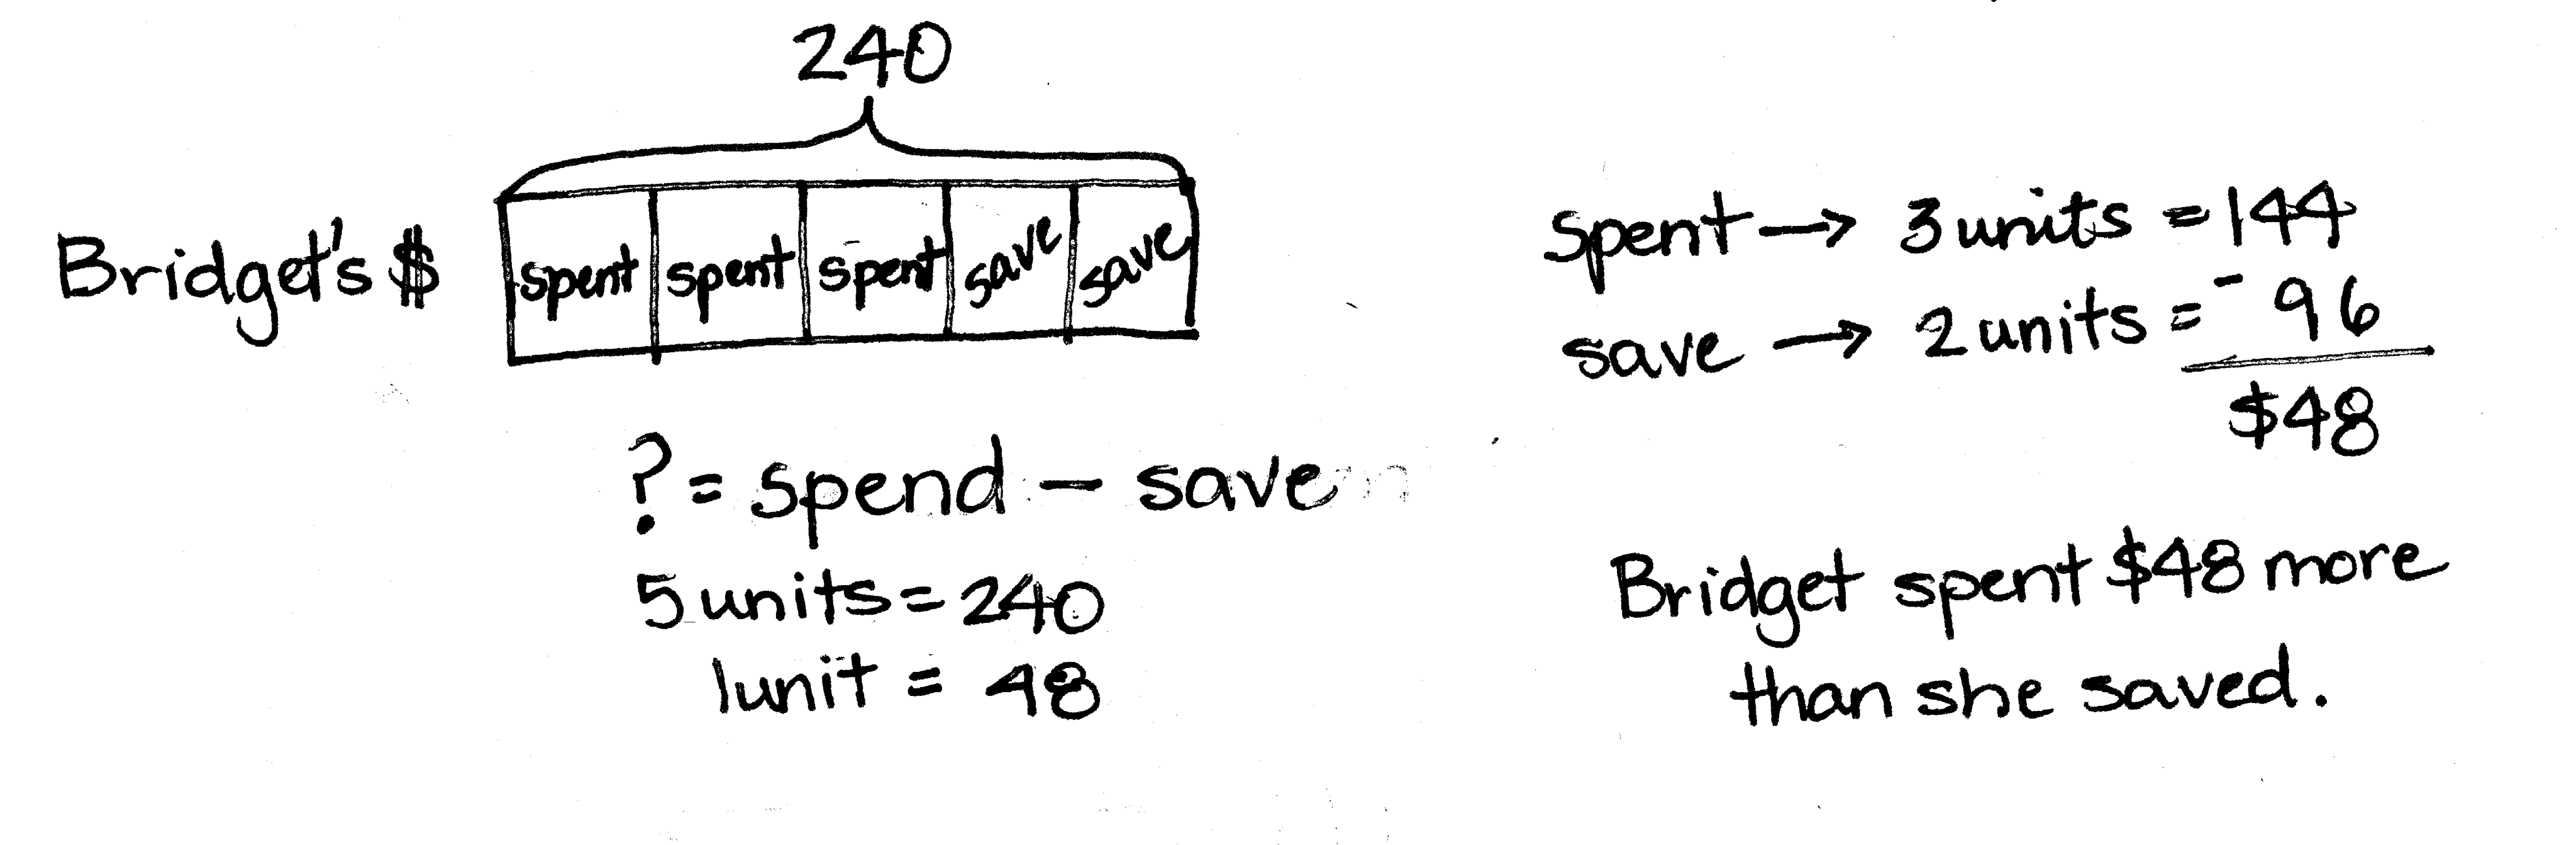 240
Bridget's $
spent spent spent save save
? = spend - save
5 units = 240
1 unit = 48
spent → 3 units = 144
save → 2 units = - 96
$48
Bridget spent $48 more
than she saved.